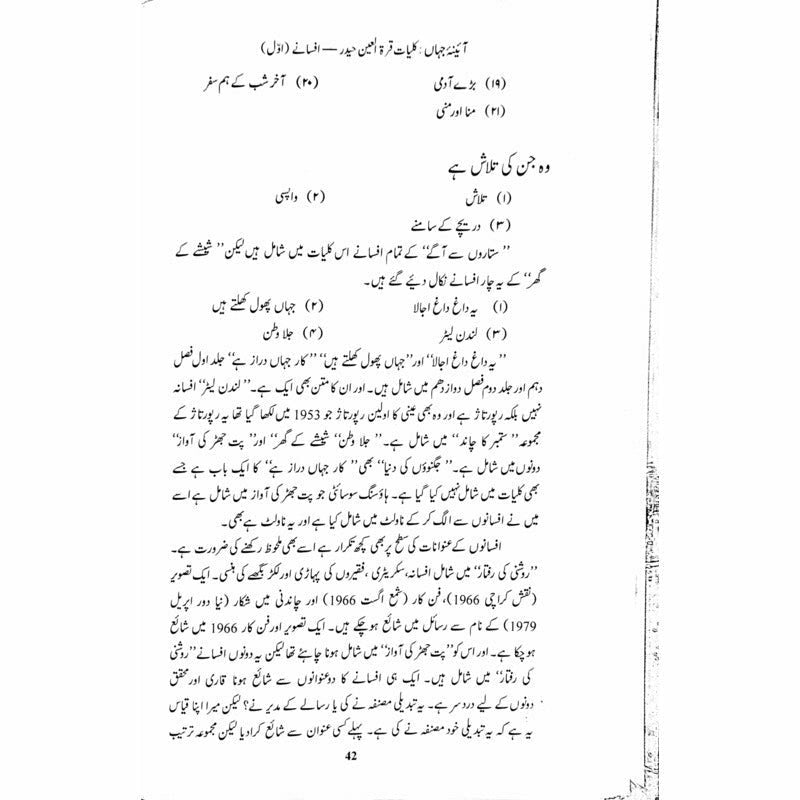 آئینۂ جہاں: کلیات قرۃ العین حیدر — افسانے (اوّل)
(۱۹) بڑے آدمی (۲۰) آخر شب کے ہم سفر
(۲۱) منا اور منی
وہ جن کی تلاش ہے
(۱) تلاش (۲) واپسی
(۳) دریچے کے سامنے
”ستاروں سے آگے“ کے تمام افسانے اس کلیات میں شامل ہیں لیکن ”شیشے کے
گھر“ کے یہ چار افسانے نکال دیئے گئے ہیں۔
(۱) یہ داغ داغ اجالا (۲) جہاں پھول کھلتے ہیں
(۳) لندن لیٹر (۴) جلا وطن
”یہ داغ داغ اجالا“ اور ”جہاں پھول کھلتے ہیں“ ”کار جہاں دراز ہے“ جلد اول فصل
دہم اور جلد دوم فصل دوازدھم میں شامل ہیں۔ اور ان کا متن بھی ایک ہے۔ ”لندن لیٹر“ افسانہ
نہیں بلکہ رپورتاژ ہے اور وہ بھی عینی کا اولین رپورتاژ جو 1953 میں لکھا گیا تھا یہ رپورتاژ کے
مجموعہ ”ستمبر کا چاند“ میں شامل ہے۔ ”جلا وطن“ شیشے کے گھر“ اور ”پت جھڑ کی آواز“
دونوں میں شامل ہے۔ ”جگنوؤں کی دنیا“ بھی ”کار جہاں دراز ہے“ کا ایک باب ہے جسے
بھی کلیات میں شامل نہیں کیا گیا ہے۔ ہاؤسنگ سوسائٹی جو پت جھڑ کی آواز میں شامل ہے اسے
میں نے افسانوں سے الگ کر کے ناولٹ میں شامل کیا ہے اور یہ ناولٹ ہے بھی۔
افسانوں کے عنوانات کی سطح پر بھی کچھ تکرار ہے اسے بھی ملحوظ رکھنے کی ضرورت ہے۔
”روشنی کی رفتار“ میں شامل افسانہ، سکریٹری، فقیروں کی پہاڑی اور لکڑ بگھے کی ہنسی۔ ایک تصویر
(نقش کراچی 1966)، فن کار (شمع اگست 1966) اور چاندنی میں شکار (نیا دور اپریل
1979) کے نام سے رسائل میں شائع ہو چکے ہیں۔ ایک تصویر اور فن کار 1966 میں شائع
ہو چکا ہے۔ اور اس کو ”پت جھڑ کی آواز“ میں شامل ہونا چاہئے تھا لیکن یہ دونوں افسانے ”روشنی
کی رفتار“ میں شامل ہیں۔ ایک ہی افسانے کا دو عنوانوں سے شائع ہونا قاری اور محقق
دونوں کے لیے درد سر ہے۔ یہ تبدیلی مصنفہ نے کی یا رسالے کے مدیر نے؟ لیکن میرا اپنا قیاس
یہ ہے کہ یہ تبدیلی خود مصنفہ نے کی ہے۔ پہلے کسی عنوان سے شائع کرا دیا لیکن مجموعہ ترتیب
42